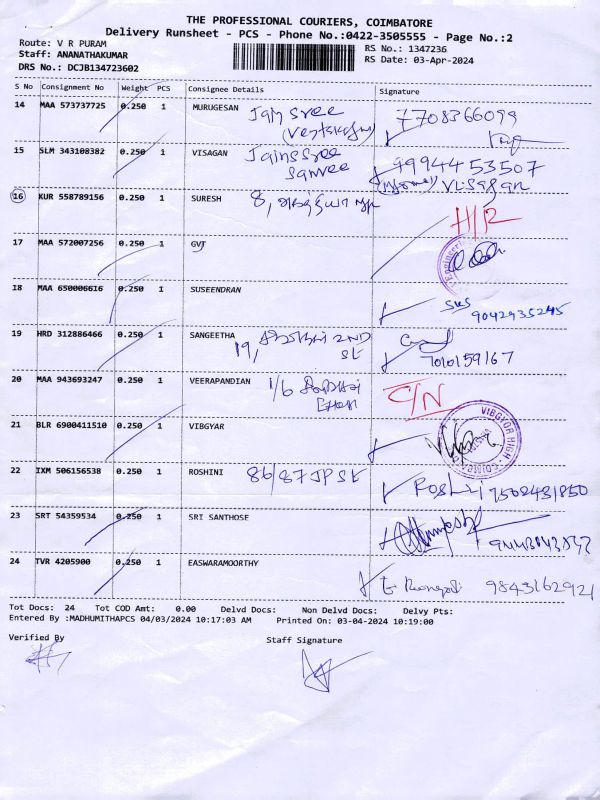 THE PROFESSIONAL COURIERS, COIMBATORE
Delivery Runsheet - PCS - Phone No.:0422-3505555 - Page No.:2
Route: V R PURAM
Staff: ANANATHAKUMAR
DRS No.: DCJB134723602
RS No.: 1347236
RS Date: 03-Apr-2024
S No Consignment No Weight PCS Consignee Details Signature
14 MAA 573737725 0.250 1 MURUGESAN Jain Sree 7708366099
15 SLM 343108382 0.250 1 VISAGAN Jains Sree 9994453507
Sanvee Visagan
16 KUR 558789156 0.250 1 SURESH 8, H/R
17 MAA 572007256 0.250 1 GVJ
18 MAA 650006616 0.250 1 SUSEENDRAN SKS 9042935245
19 HRD 312886466 0.250 1 SANGEETHA 19, 2ND
St 7010159167
20 MAA 943693247 0.250 1 VEERAPANDIAN 1/6 C/N
21 BLR 6900411510 0.250 1 VIBGYAR VIBGYOR HIGH
22 IXM 506156538 0.250 1 ROSHINI 86/87 JP St Roshini 7502431850
23 SRT 54359534 0.250 1 SRI SANTHOSE
24 TVR 4205900 0.250 1 EASWARAMOORTHY 9843162921
Tot Docs: 24 Tot COD Amt: 0.00 Delvd Docs: Non Delvd Docs: Delvy Pts:
Entered By :MADHUMITHAPCS 04/03/2024 10:17:03 AM Printed On: 03-04-2024 10:19:00
Verified By Staff Signature